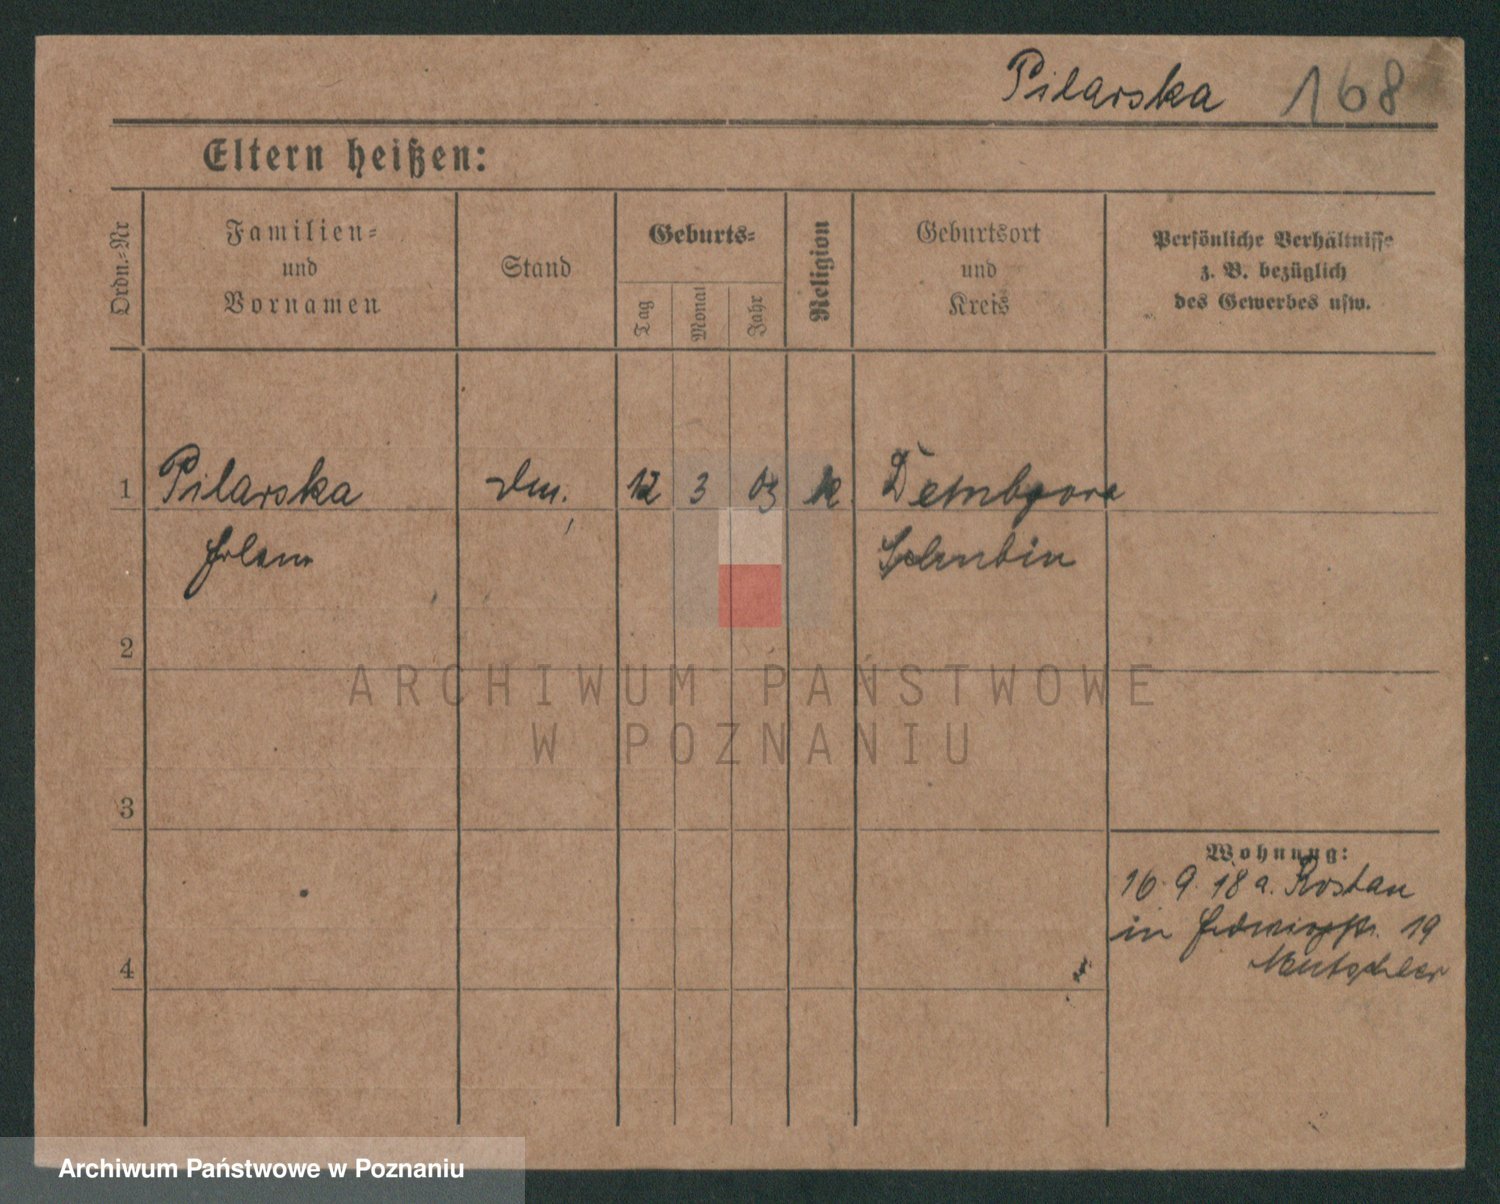 Pilarska 168
Eltern heißen:
Ordn.-Nr
Familien-
und
Vornamen
Stand
Geburts-
Tag
Monat
Jahr
Religion
Geburtsort
und
Kreis
Persönliche Verhältnisse
z. B. bezüglich
des Gewerbes usw.
1 Pilarska 12 3 03 k. Dembgora
Schubin
2
3
4
Wohnung:
16. 9. 18 a. Rostau
in 19
ARCHIWUM PAŃSTWOWE
W POZNANIU
Archiwum Państwowe w Poznaniu